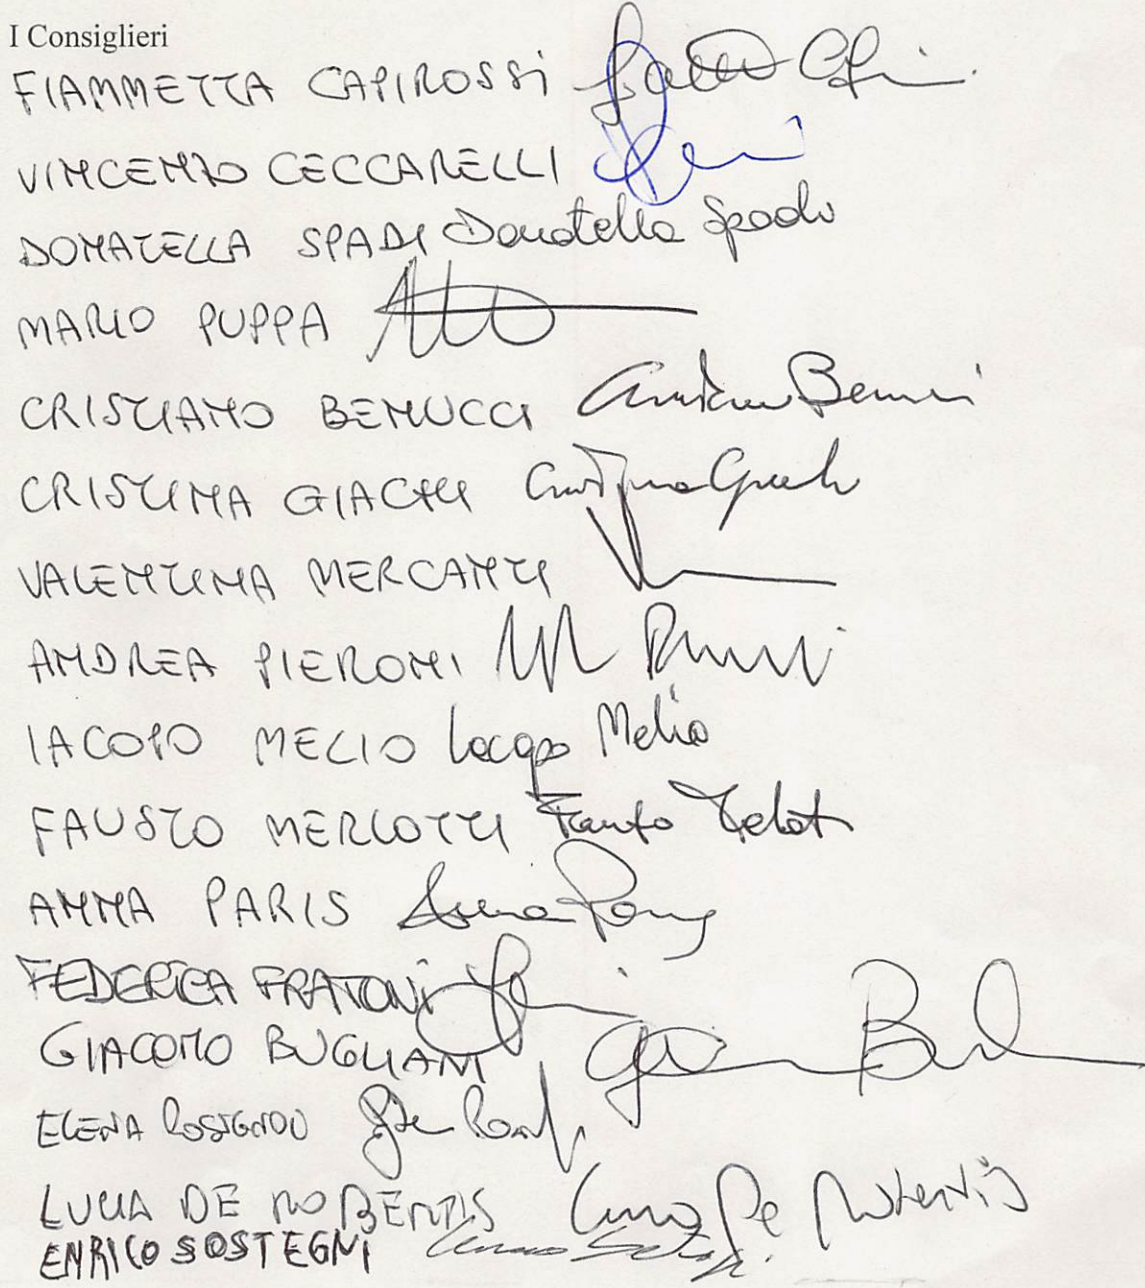 I Consiglieri
FIAMMETTA CAPIROSSI
VINCENZO CECCARELLI
DONATELLA SPADI Donatella Spadi
MARIO PUPPA
CRISTIANO BENUCCI Cristiano Benucci
CRISTINA GIACHI Cristina Giachi
VALENTINA MERCANTI
ANDREA PIERONI
IACOPO MELIO Iacopo Melio
FAUSTO MERLOTTI Fausto
ANNA PARIS Anna Paris
FEDERICA FRATONI
GIACOMO BUGLIANI
ELENA ROSIGNOLI
LUCIA DE ROBERTIS Lucia De Robertis
ENRICO SOSTEGNI